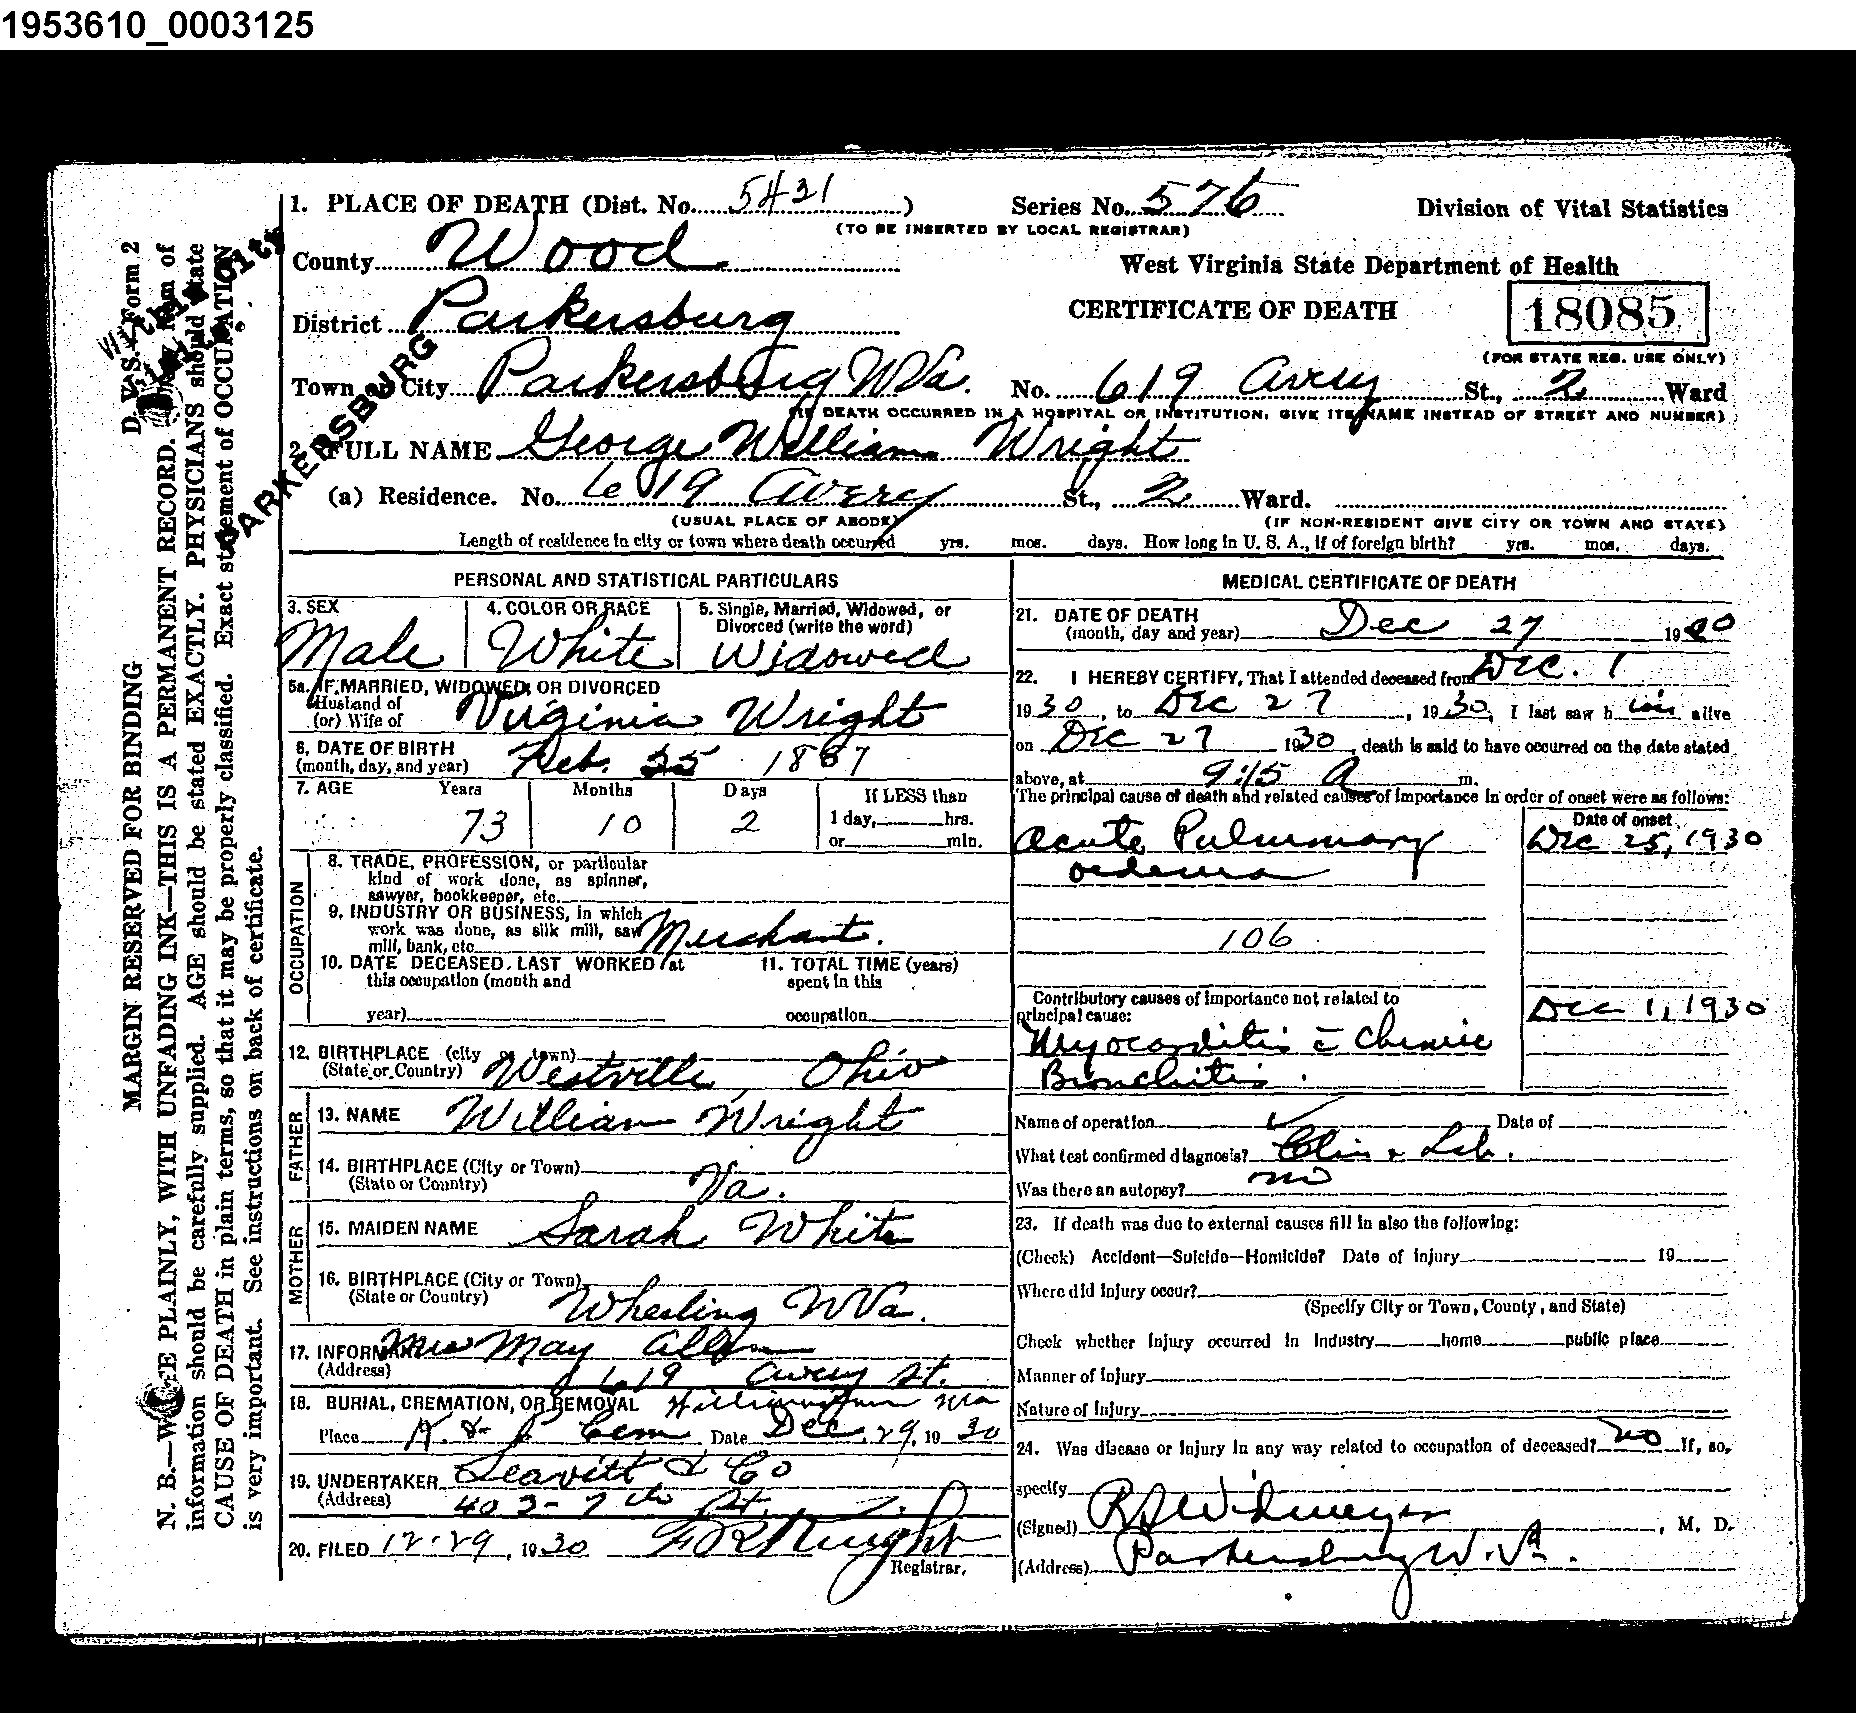 1953610_0003125
1. PLACE OF DEATH (Dist. No. 5421 )
Series No. 576
Division of Vital Statistics
(TO BE INSERTED BY LOCAL REGISTRAR)
County Wood
West Virginia State Department of Health
District Parkersburg
CERTIFICATE OF DEATH
18085
(FOR STATE REG. USE ONLY)
Town or City Parkersburg WVa. No. 619 Avery St., 2 Ward
(IF DEATH OCCURRED IN A HOSPITAL OR INSTITUTION, GIVE ITS NAME INSTEAD OF STREET AND NUMBER)
2. FULL NAME George William Wright
(a) Residence. No. 619 Avery St., 2 Ward.
(USUAL PLACE OF ABODE)
(IF NON-RESIDENT GIVE CITY OR TOWN AND STATE)
Length of residence in city or town where death occurred yrs. mos. days. How long in U. S. A., if of foreign birth? yrs. mos. days.
PERSONAL AND STATISTICAL PARTICULARS
3. SEX
Male
4. COLOR OR RACE
White
5. Single, Married, Widowed, or
Divorced (write the word)
Widowed
5a. IF MARRIED, WIDOWED, OR DIVORCED
Husband of
(or) Wife of Virginia Wright
6. DATE OF BIRTH
(month, day, and year) Feb. 25 1857
7. AGE Years Months Days If LESS than
73 10 2 1 day, hrs.
or min.
OCCUPATION
8. TRADE, PROFESSION, or particular
kind of work done, as spinner,
sawyer, bookkeeper, etc.
9. INDUSTRY OR BUSINESS, in which
work was done, as silk mill, saw
mill, bank, etc. Merchant.
10. DATE DECEASED LAST WORKED at
this occupation (month and
year)
11. TOTAL TIME (years)
spent in this
occupation
12. BIRTHPLACE (city or town)
(State or Country) Westville, Ohio
FATHER
13. NAME William Wright
14. BIRTHPLACE (City or Town)
(State or Country) Va.
MOTHER
15. MAIDEN NAME Sarah White
16. BIRTHPLACE (City or Town)
(State or Country) Wheeling WVa.
17. INFORMANT Mrs May Allen
(Address) 619 Avery St.
18. BURIAL, CREMATION, OR REMOVAL Williamstown WVa
Place Cem Date Dec. 29, 1930
19. UNDERTAKER Leavitt & Co
(Address) 403-7th St.
20. FILED 12-29, 1930
Registrar.
MEDICAL CERTIFICATE OF DEATH
21. DATE OF DEATH
(month, day and year) Dec 27 1930
22. I HEREBY CERTIFY, That I attended deceased from Dec. 1
1930, to Dec 27, 1930, I last saw him alive
on Dec 27 1930, death is said to have occurred on the date stated
above, at 9:15 A m.
The principal cause of death and related causes of importance in order of onset were as follows:
Date of onset
Acute Pulmonary Dec 25, 1930
oedema
106
Contributory causes of importance not related to
principal cause:
Dec 1, 1930
Myocarditis c̄ Chronic
Bronchitis.
Name of operation Date of
What test confirmed diagnosis? Clin & Lab.
Was there an autopsy? no
23. If death was due to external causes fill in also the following:
(Check) Accident—Suicide—Homicide? Date of injury 19
Where did injury occur?
(Specify City or Town, County, and State)
Check whether injury occurred in industry home public place
Manner of Injury
Nature of Injury
24. Was disease or injury in any way related to occupation of deceased? no If, so,
specify
(Signed) , M. D.
(Address) Parkersburg W. Va.
D. W. S. Form 2
MARGIN RESERVED FOR BINDING
N. B.—WRITE PLAINLY, WITH UNFADING INK—THIS IS A PERMANENT RECORD. Every item of
information should be carefully supplied. AGE should be stated EXACTLY. PHYSICIANS should state
CAUSE OF DEATH in plain terms, so that it may be properly classified. Exact statement of OCCUPATION
is very important. See instructions on back of certificate.
PARKERSBURG